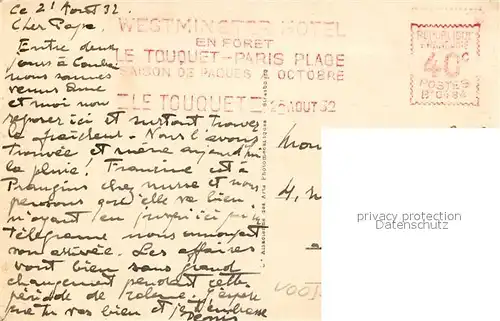 Ce 21 Août 32.
Cher Papa,
Entre deux
jours à
nous sommes
venus
et moi nous
reposer ici et surtout trouver
la fraîcheur. Nous l'avons
trouvée et même aujourd'hui
la pluie! Francine est à
Prangins chez nurse et nous
pensons qu'elle va bien
n'ayant en
télégramme nous annonçant
son arrivée. Les affaires
vont bien sans grand
changement pendant cette
période de calme. J'espère
que tu vas bien et je t'embrasse
WESTMINSTER HOTEL
EN FORET
LE TOUQUET-PARIS PLAGE
SAISON DE PAQUES A OCTOBRE
LE TOUQUET
AOUT 32
REPUBLIQUE
FRANÇAISE
40c
POSTES
B 0484
Mon
4,
privacy protection
oldthing.de